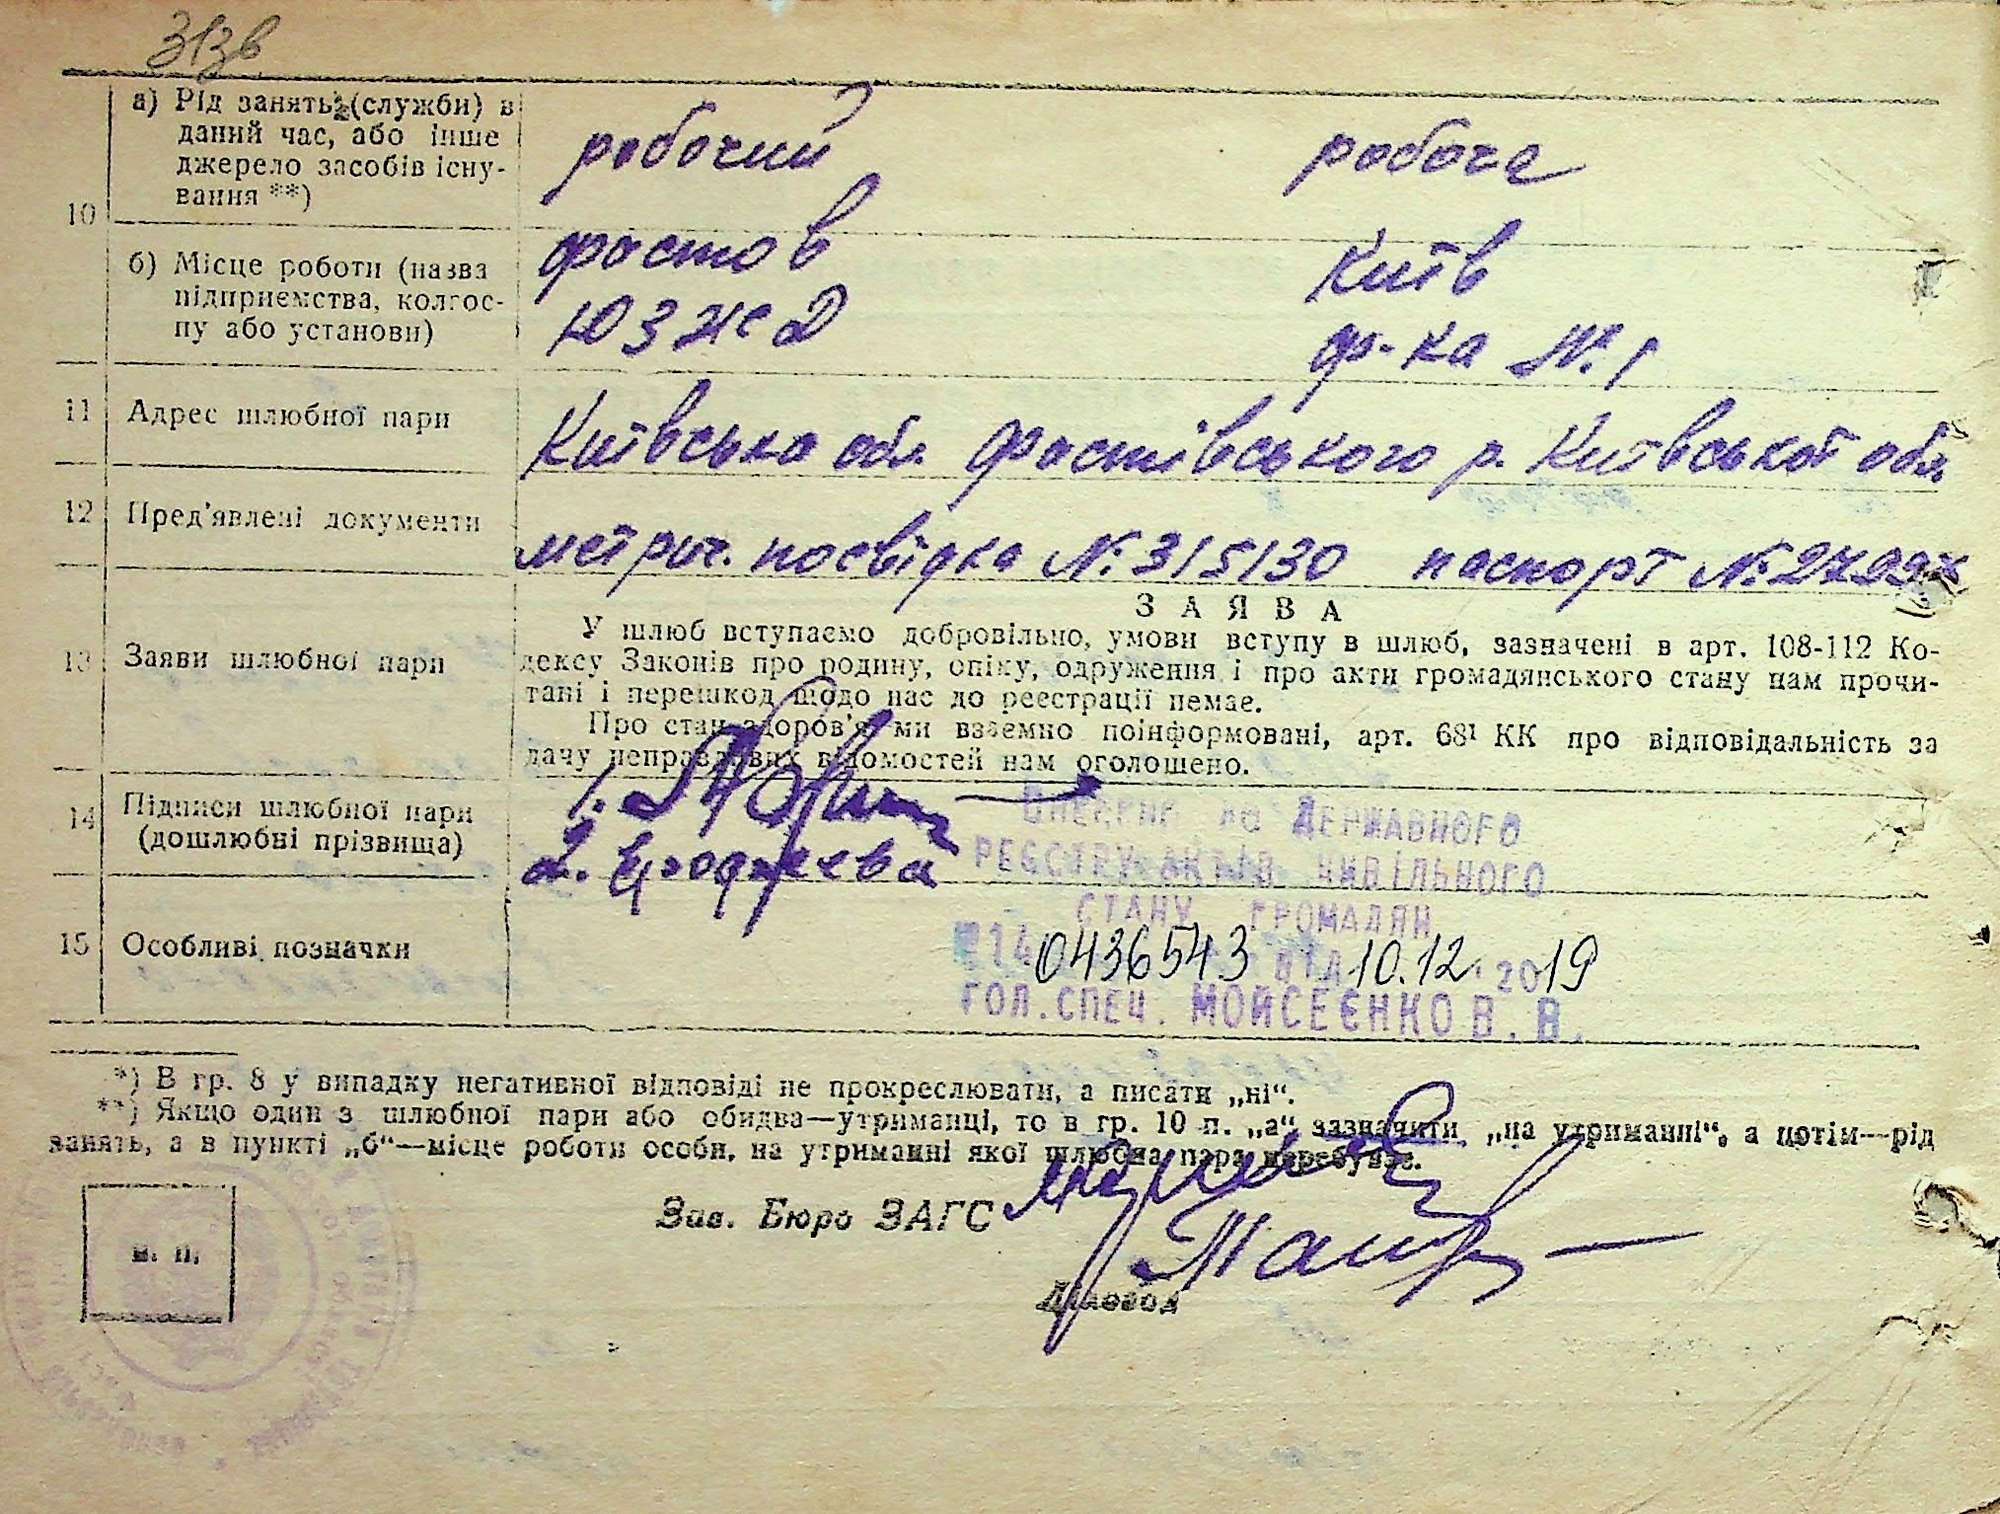 313в
10
а) Рід занять (служби) в
даний час, або інше
джерело засобів існу-
вання **)
робочий
робоча
б) Місце роботи (назва
підприємства, колгос-
пу або установи)
Фастов
ЮЗЖД
Київ
ф-ка № 1
11 Адрес шлюбної пари
Київська обл. Фастівського р. Київської обл
12 Пред'явлені документи
метрич. посвідка № 315130 паспорт №
13 Заяви шлюбної пари
ЗАЯВА
У шлюб вступаємо добровільно, умови вступу в шлюб, зазначені в арт. 108-112 Ко-
дексу Законів про родину, опіку, одруження і про акти громадянського стану нам прочи-
тані і перешкод щодо нас до реєстрації немає.
Про стан здоров'я ми взаємно поінформовані, арт. 68¹ КК про відповідальність за
дачу неправдивих відомостей нам оголошено.
14 Підписи шлюбної пари
(дошлюбні прізвища)
1.
2.
ВНЕСЕНО ДО ДЕРЖАВНОГО
РЕЄСТРУ АКТІВ ЦИВІЛЬНОГО
СТАНУ ГРОМАДЯН
15 Особливі позначки
№14 0436543 ВІД 10.12.2019
ГОЛ.СПЕЦ. МОЙСЕЄНКО В.В.
*) В гр. 8 у випадку негативної відповіді не прокреслювати, а писати „ні“.
**) Якщо один з шлюбної пари або обидва—утриманці, то в гр. 10 п. „а“ зазначити „на утриманні“, а потім—рід
занять, а в пункті „б“—місце роботи особи, на утриманні якої шлюбна пара перебуває.
Зав. Бюро ЗАГС
м. п.
Діловод